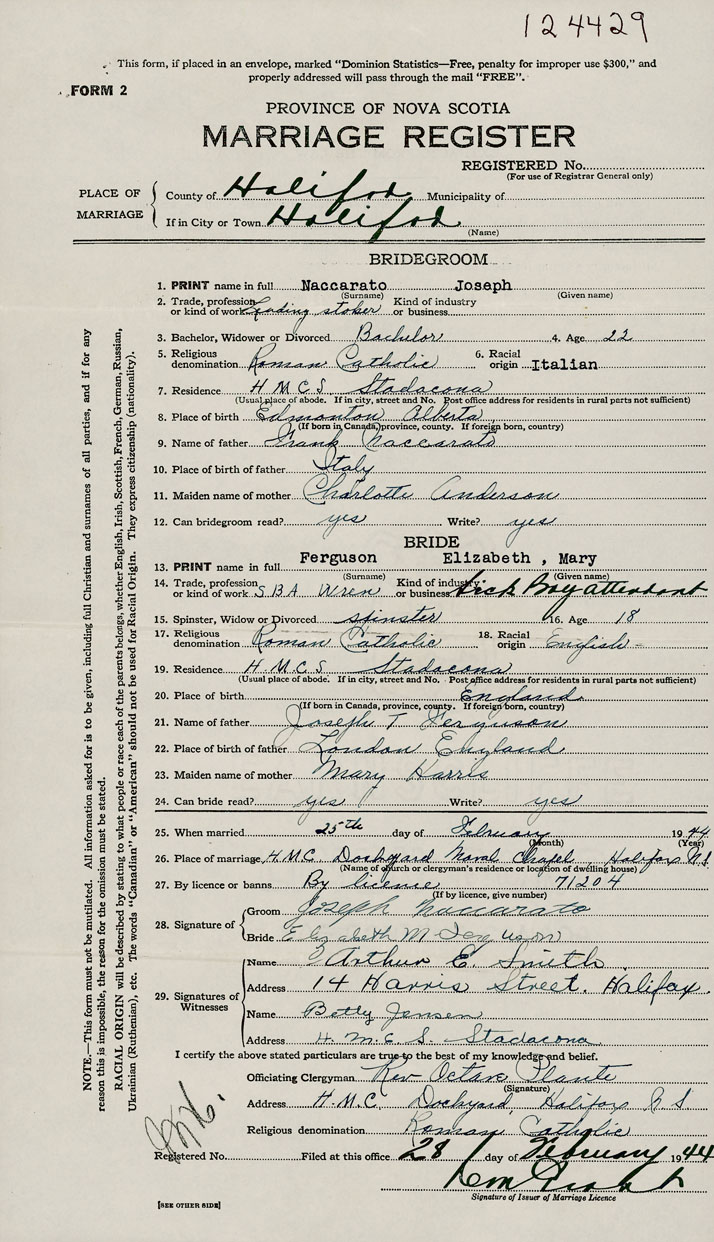 124429
This form, if placed in an envelope, marked "Dominion Statistics—Free, penalty for improper use $300," and
properly addressed will pass through the mail "FREE".
FORM 2
PROVINCE OF NOVA SCOTIA
MARRIAGE REGISTER
REGISTERED No.
(For use of Registrar General only)
PLACE OF MARRIAGE
County of Halifax Municipality of
If in City or Town Halifax
(Name)
BRIDEGROOM
1. PRINT name in full Naccarato Joseph
(Surname) (Given name)
2. Trade, profession or kind of work Leading stoker Kind of industry or business
3. Bachelor, Widower or Divorced Bachelor 4. Age 22
5. Religious denomination Roman Catholic 6. Racial origin Italian
7. Residence H.M.C.S. Stadacona
(Usual place of abode. If in city, street and No. Post office address for residents in rural parts not sufficient)
8. Place of birth Edmonton Alberta
(If born in Canada, province, county. If foreign born, country)
9. Name of father Frank Naccarato
10. Place of birth of father Italy
11. Maiden name of mother Charlotte Anderson
12. Can bridegroom read? yes Write? yes
BRIDE
13. PRINT name in full Ferguson Elizabeth , Mary
(Surname) (Given name)
14. Trade, profession or kind of work S.B.A Wren Kind of industry or business Sick Bay attendant
15. Spinster, Widow or Divorced spinster 16. Age 18
17. Religious denomination Roman Catholic 18. Racial origin English
19. Residence H.M.C.S Stadacona
(Usual place of abode. If in city, street and No. Post office address for residents in rural parts not sufficient)
20. Place of birth England
(If born in Canada, province, county. If foreign born, country)
21. Name of father Joseph T Ferguson
22. Place of birth of father London England
23. Maiden name of mother Mary Harris
24. Can bride read? yes Write? yes
25. When married 25th day of February 1944
(Month) (Year)
26. Place of marriage H.M.C. Dockyard Naval Chapel Halifax N.S
(Name of church or clergyman's residence or location of dwelling house)
27. By licence or banns By licence 71204
(If by licence, give number)
28. Signature of
Groom Joseph Naccarato
Bride Elizabeth M Ferguson
29. Signatures of Witnesses
Name Arthur E. Smith
Address 14 Harris Street. Halifax.
Name Betty Jensen
Address H.M.C.S. Stadacona
I certify the above stated particulars are true to the best of my knowledge and belief.
Officiating Clergyman Rev Octave Plante
(Signature)
Address H.M.C. Dockyard, Halifax N.S.
Religious denomination Roman Catholic
Registered No. Filed at this office 28 day of February 1944
Signature of Issuer of Marriage Licence
[SEE OTHER SIDE]
NOTE.—This form must not be mutilated. All information asked for is to be given, including full Christian and surnames of all parties, and if for any
reason this is impossible, the reason for the omission must be stated.
RACIAL ORIGIN will be described by stating to what people or race each of the parents belongs, whether English, Irish, Scottish, French, German, Russian,
Ukrainian (Ruthenian), etc. The words "Canadian" or "American" should not be used for Racial Origin. They express citizenship (nationality).